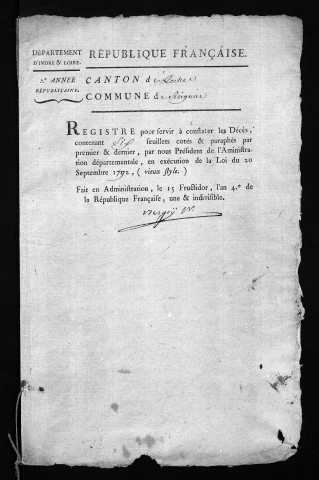 DÉPARTEMENT
D'INDRE & LOIRE.
5.e ANNÉE
RÉPUBLICAINE.
RÉPUBLIQUE FRANÇAISE.
CANTON de Loches
COMMUNE de
REGISTRE pour servir à constater les Décès,
contenant Six feuillets cotés & paraphés par
premier & dernier, par nous Président de l'Aministra-
tion départementale, en exécution de la Loi du 20
Septembre 1792, (vieux style.)
Fait en Administration, le 15 Fructidor, l'an 4.e de
la République Française, une & indivisible.